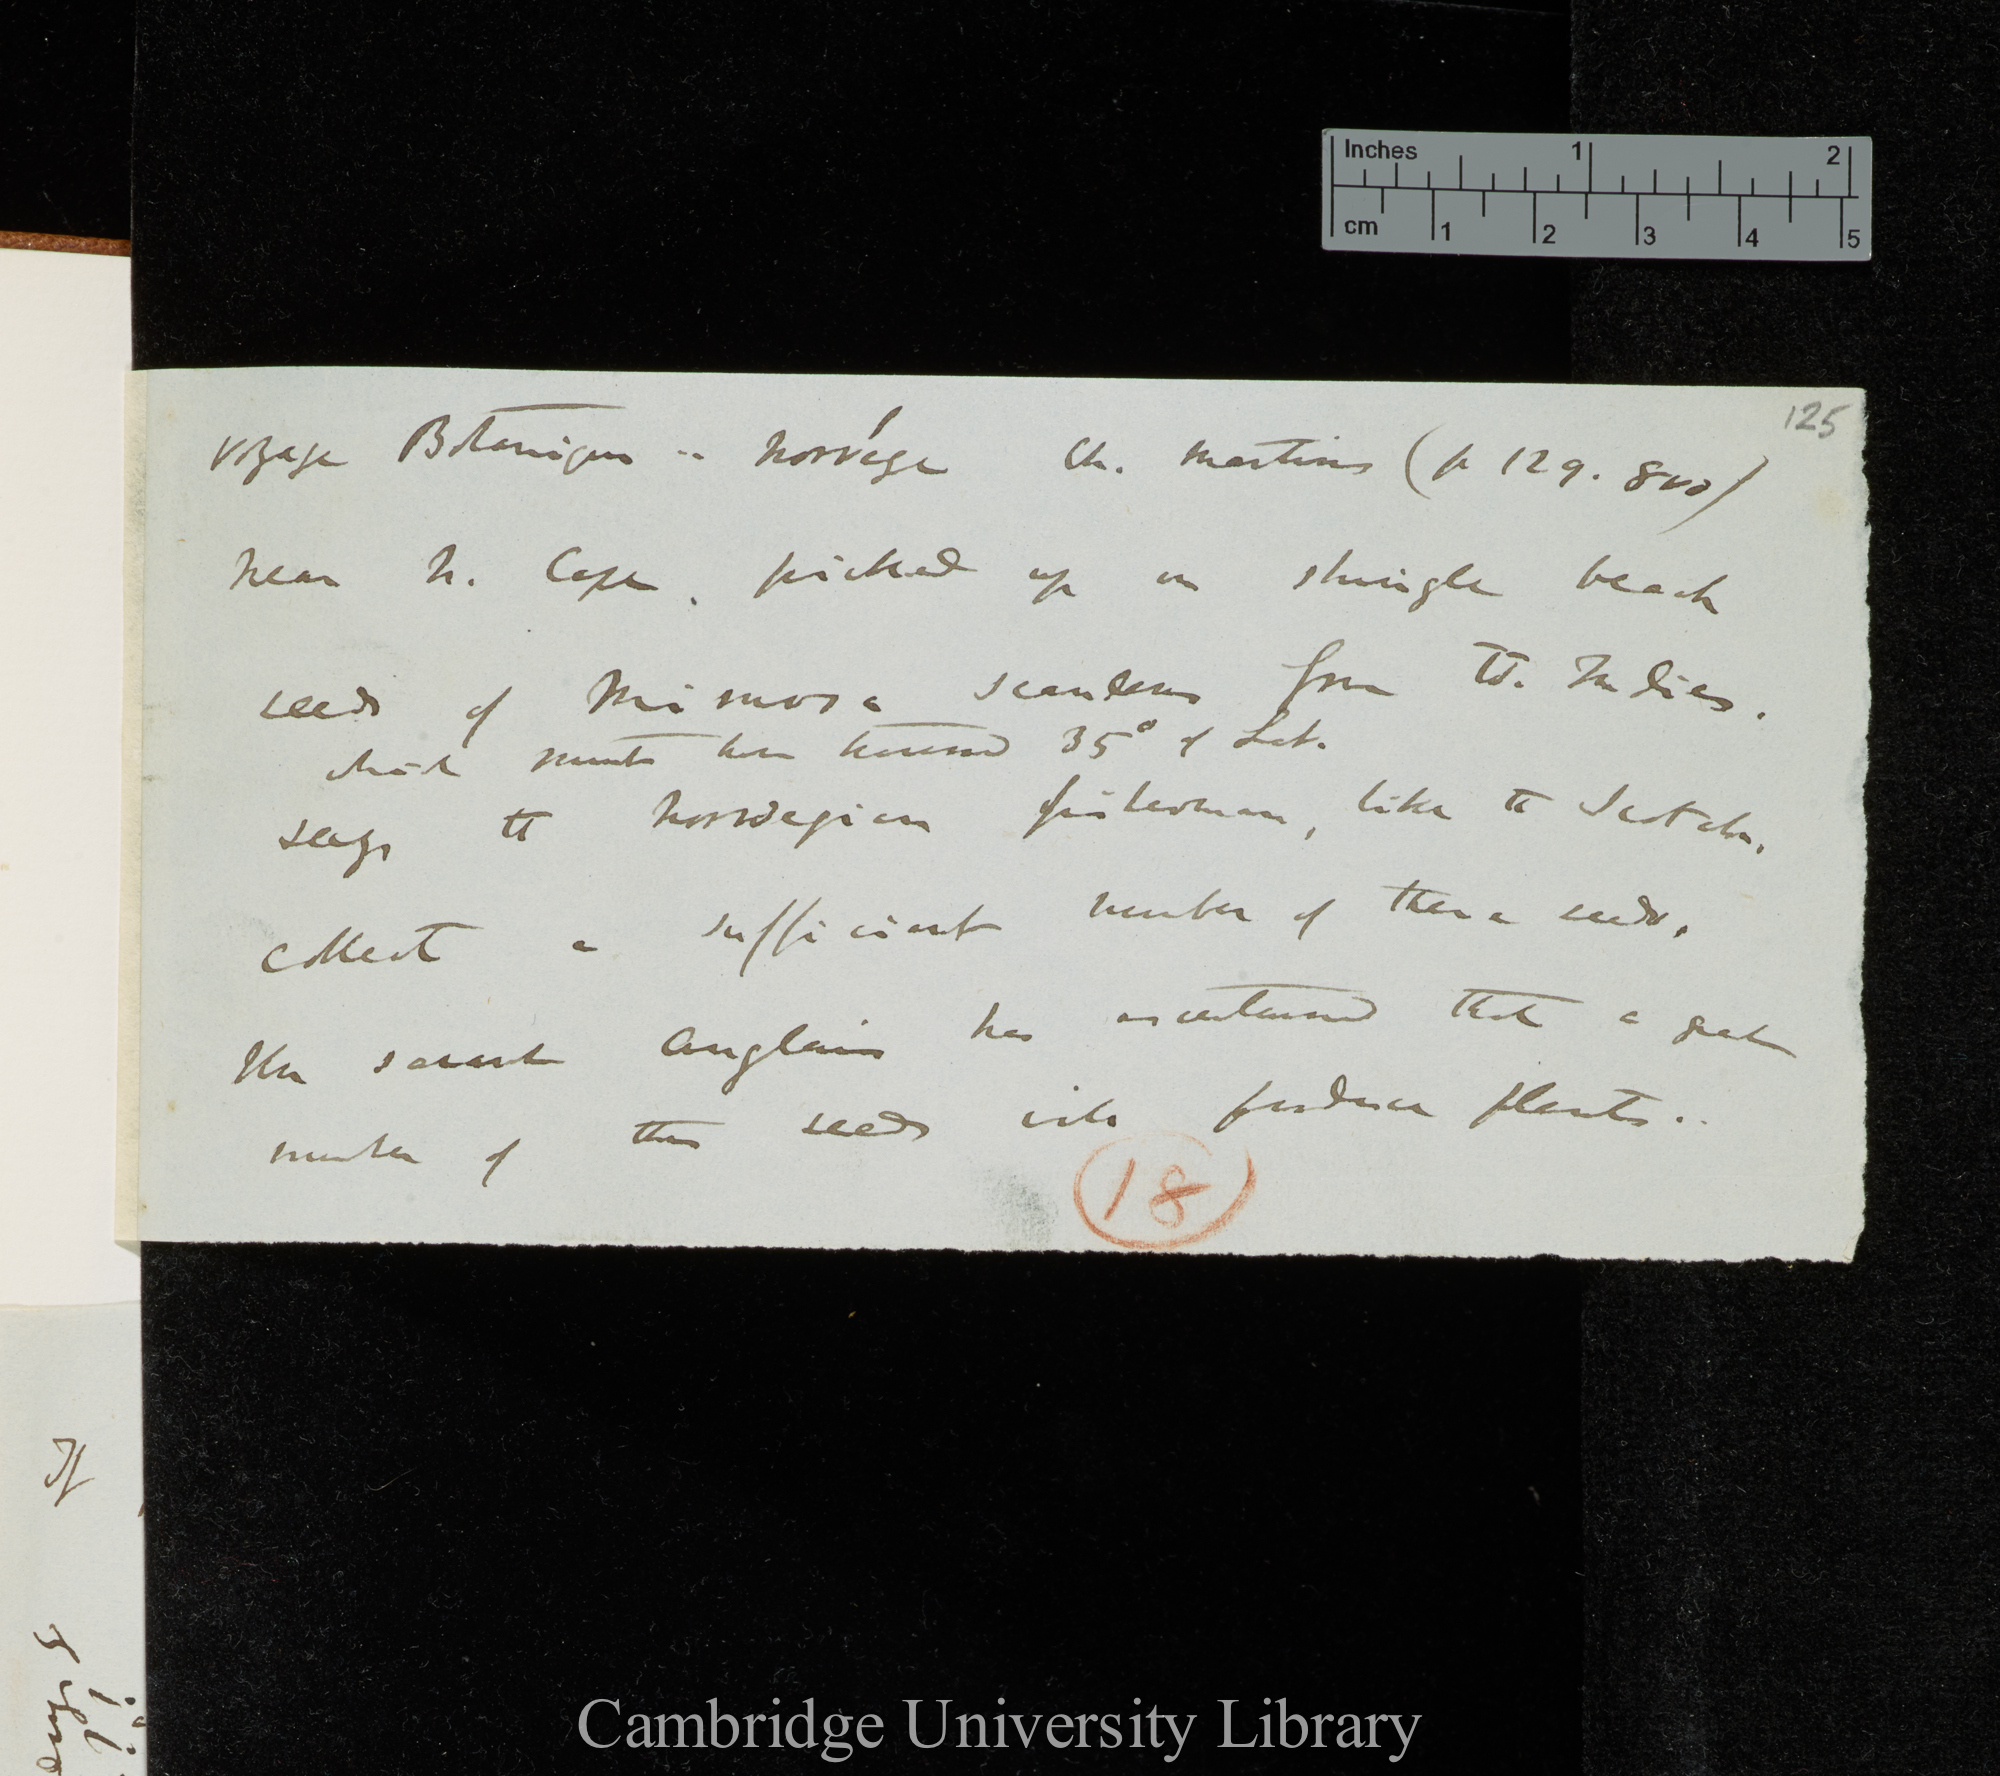 125
Voyage Botanique .. Norvége Ch. Martins (p 129. 8vo)
Near N. Cape, picked up on shingle beach
seeds of Mimosa scandens from W. Indies.
which must have traversed 35° of Lat.
says the Norwegian fisherman, like the Scotch,
collect a sufficient number of these seeds.
Un savant Anglais has ascertained that a great
number of these seeds produce plants..
18
Inches 1 2
cm 1 2 3 4 5
Cambridge University Library